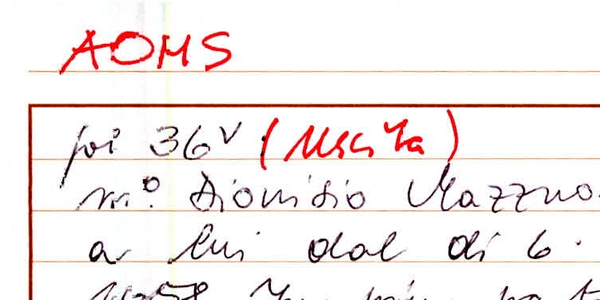 AOMS
foi 36v (Uscita)
m°. Dionisio Mazzuo.
a lui dal di 6.